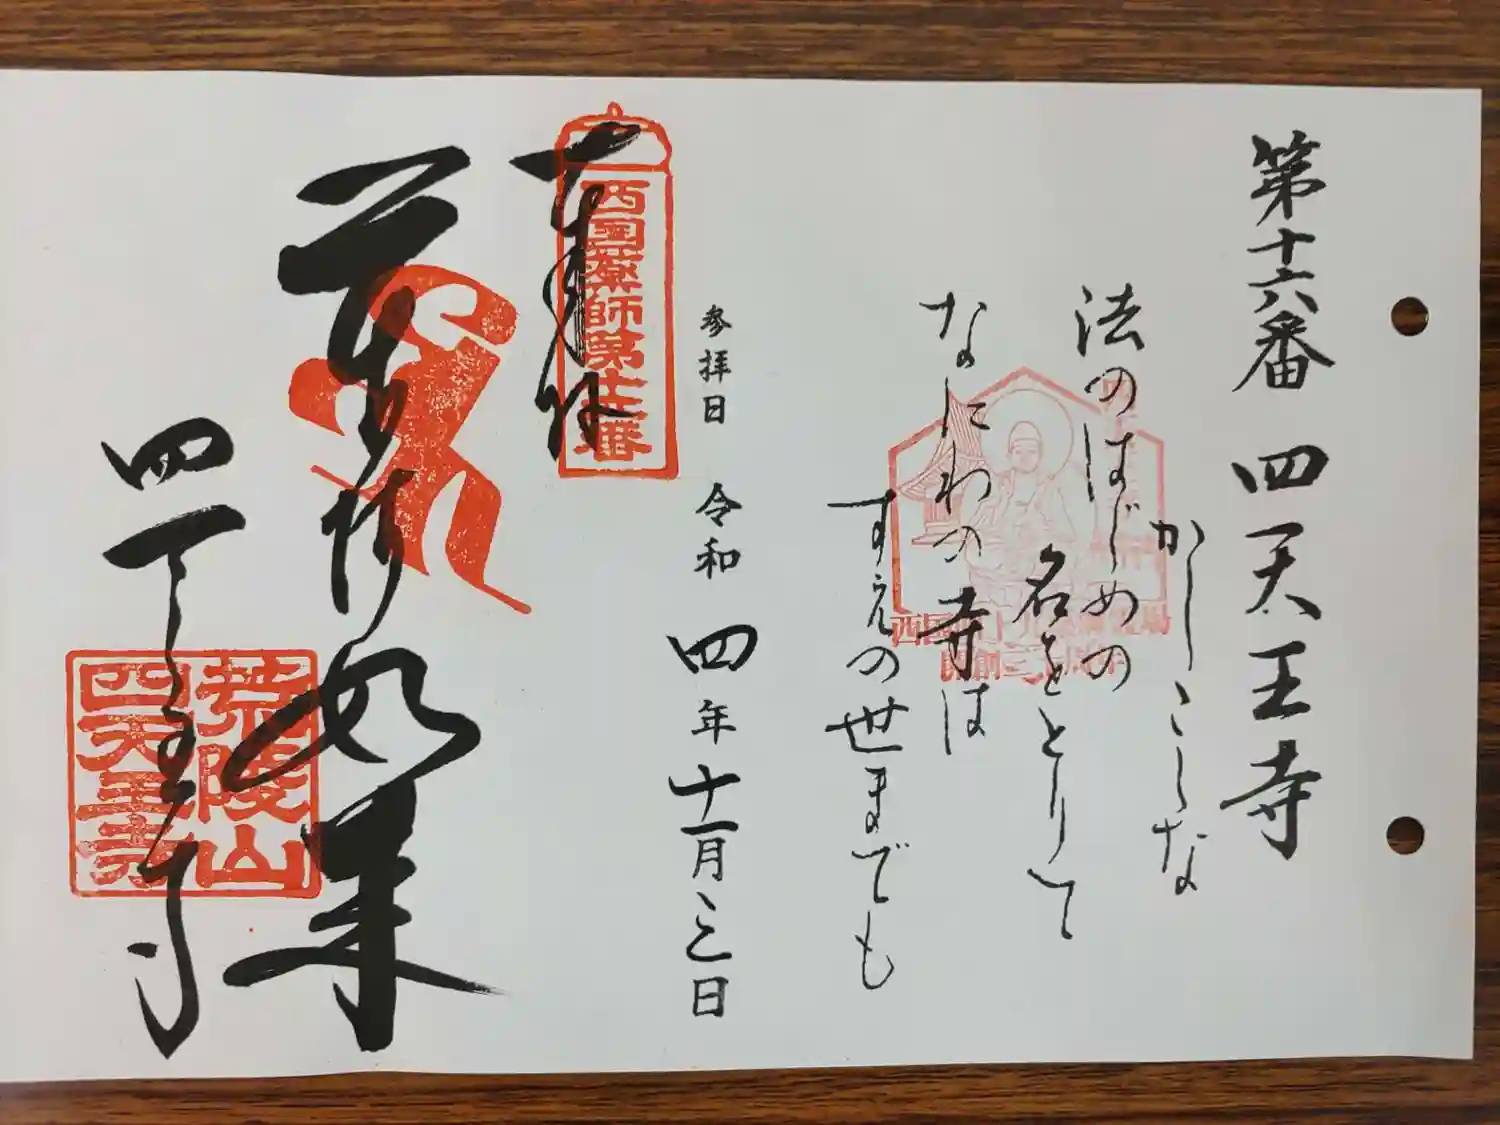 第十六番 四天王寺
かしこしな
法のはじめの
名をとりて
なにわの寺は
すえの世までも
参拝日 令和 四年十一月三日
奉拝
西国薬師第十六番
薬師如来
四天王寺
荒陵山
四天王寺